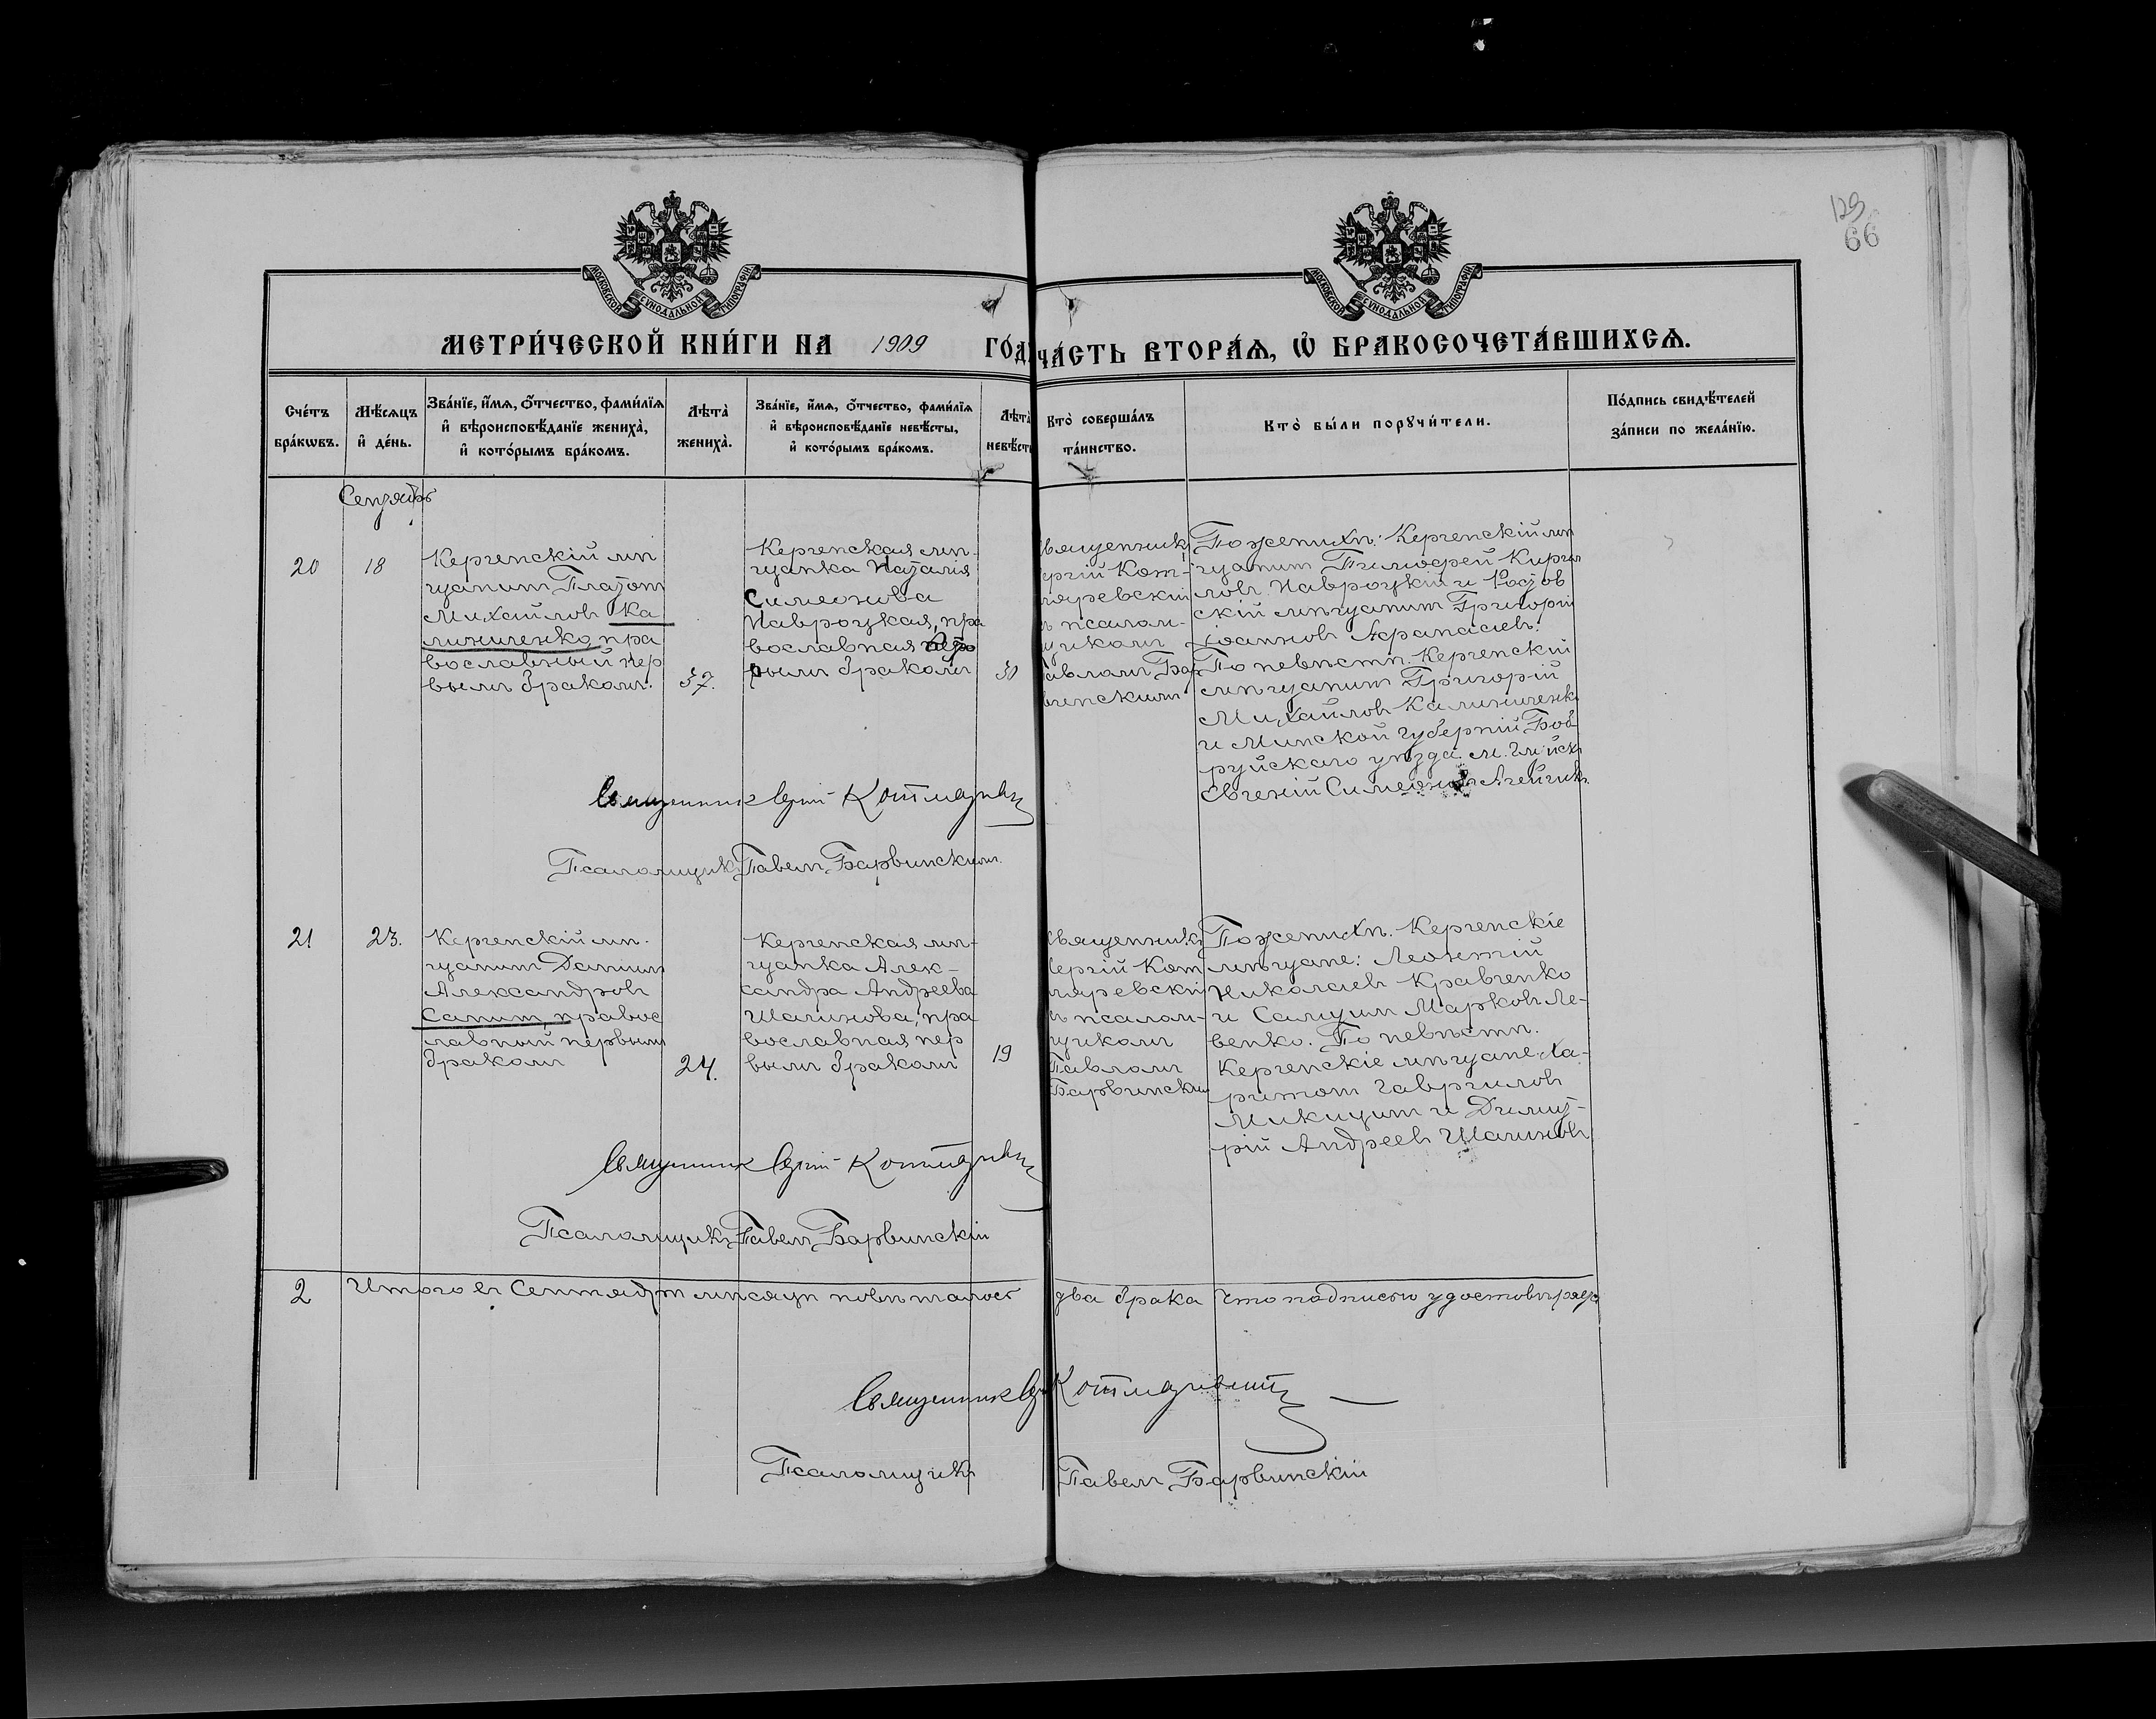 129
66
МОСКОВСКОЙ СѴНОДАЛЬНОЙ ТИПОГРАФІИ
МОСКОВСКОЙ СѴНОДАЛЬНОЙ ТИПОГРАФІИ
МЕТРИ́ЧЕСКОЙ КНИ́ГИ НА 1909 ГО́Д
ЧА́СТЬ ВТОРА́Ѧ, Ѡ҆ БРАКОСОЧЕТА́ВШИХСѦ.
Сче́тъ
бра́кѡвъ.
Мѣ́сѧцъ
и҆ де́нь.
Зва́нїе, и҆́мѧ, о҆́тчество, фами́лїѧ
и҆ вѣроисповѣ́данїе жениха̀,
и҆ кото́рымъ бра́комъ.
Лѣта̀
жениха̀.
Зва́нїе, и҆́мѧ, о҆́тчество, фами́лїѧ
и҆ вѣроисповѣ́данїе невѣ́сты,
и҆ кото́рымъ бра́комъ.
Лѣта̀
невѣ́ст
Кто̀ соверша́лъ
та́инство.
Кто̀ бы́ли порꙋчи́тели.
По́дпись свидѣ́телей
за́писи по жела́нїю.
Сентябрь
20
18
Керченскій мѣ
щанинъ Платонъ
Михайловъ Ка
линиченко, пра
вославный пер
вымъ бракомъ.
37.
Керченская мѣ-
щанка Наталія
Симеонова
Навроцкая, пра
вославная
рвымъ бракомъ
30
вященникъ
ергій Кот-
ляревскій
ъ псалом-
щикомъ
авломъ Бар
винскимъ
По женихѣ: Керченскій мѣ
щанинъ Тимофей Кирил
ловъ Навроцкій и Ростов
скій мѣщанинъ Григорій
Іоанновъ Афанасіевъ.
По невѣстѣ. Керченскій
мѣщанинъ Григорій
Михайловъ Калиниченко
и Минской губерніи Боб-
руйскаго уѣзда м.
Евгеній Симеоновъ
Священникъ Сергій Котляревскій
Псаломщикъ Павелъ Барвинскій
21
23.
Керченскій мѣ-
щанинъ Даниилъ
Александровъ
Санинъ, правос
лавный первымъ
бракомъ
24.
Керченская мѣ-
щанка Алек-
сандра Андреева
Шагинова, пра
вославная пер
вымъ бракомъ
19
Священникъ
Сергій Кот
ляревскій
ъ псалом-
щикомъ
Павломъ
Барвинским
По женихѣ. Керченскіе
мѣщане: Леонтій
Николаевъ Кравченко
и Самуилъ Марковъ Ле-
венко. По невѣстѣ.
Керченскіе мѣщане: Ха-
ритонъ Гавриловъ
Микицинъ и Димит-
рій Андреевъ Шагиновъ
Священникъ Сергій Котляревскій
Псаломщикъ Павелъ Барвинскій
2
Итого въ Сентябрѣ мѣсяцѣ повѣнчалось два брака Что подписью удостовѣряемъ
Священникъ Котляревскій
Псаломщикъ Павелъ Барвинскій